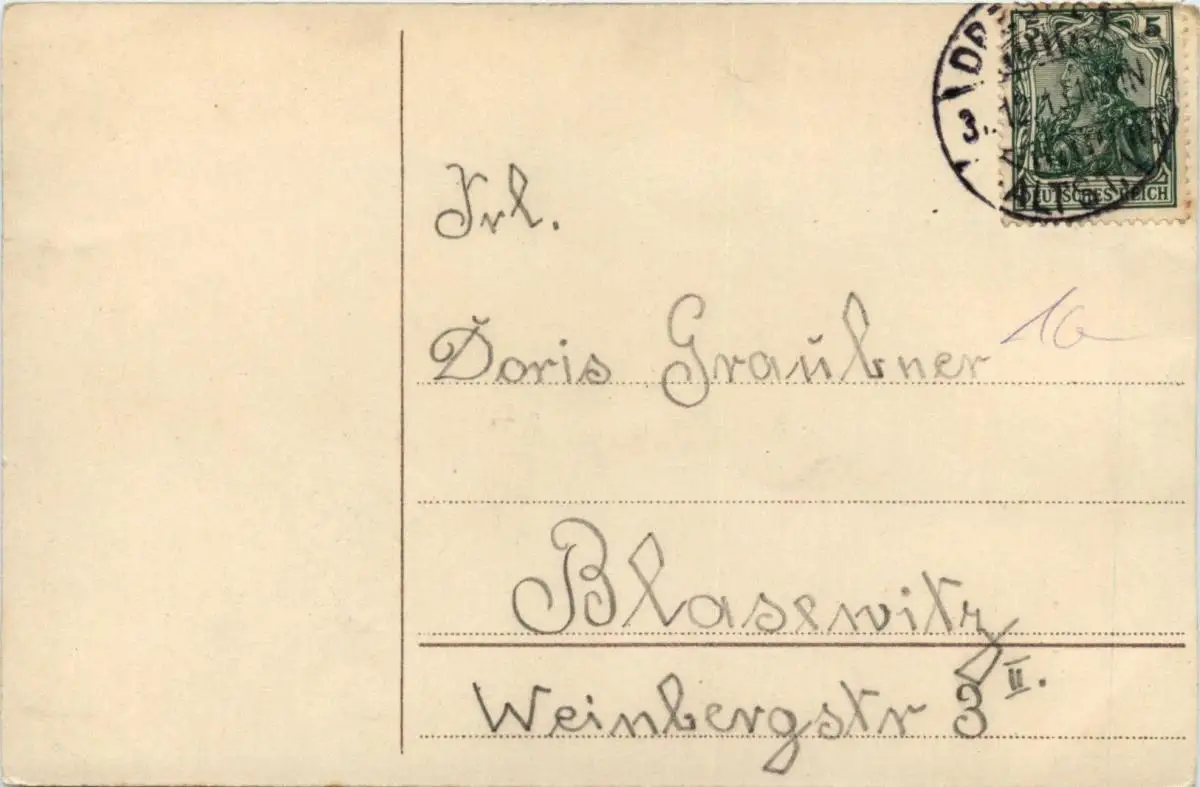 5 5
DEUTSCHES REICH
Frl.
Doris Graubner
Blasewitz
Weinbergstr 3 II.